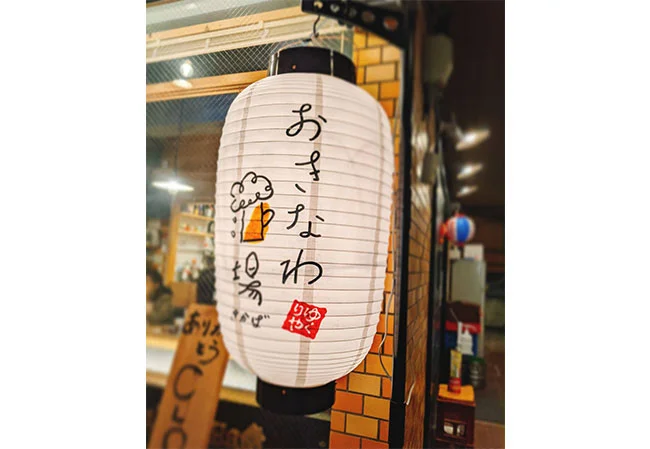 おきなわ
ゆくりや
酒場
さかば
ありがとう
CLO